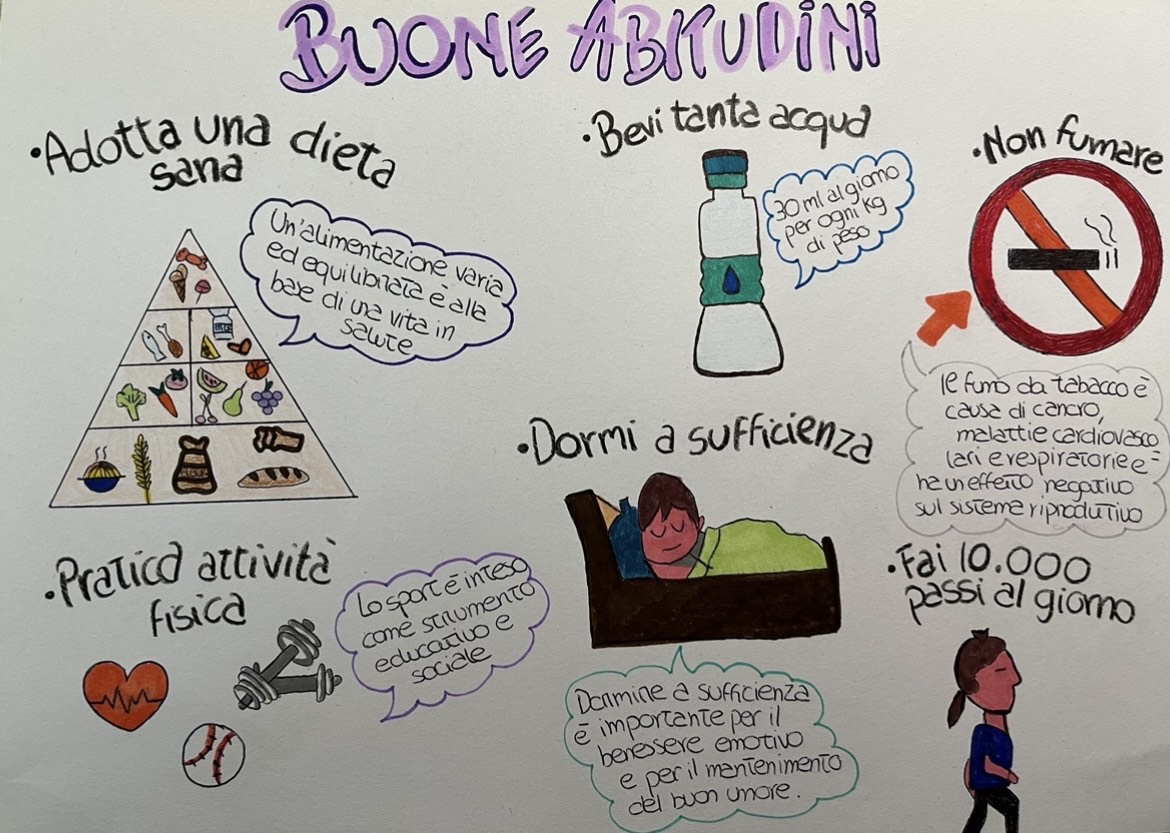 BUONE ABITUDINI
•Adotta una dieta
sana
Un'alimentazione varia
ed equilibrata è alla
base di una vita in
salute
•Bevi tanta acqua
30 ml al giorno
per ogni kg
di peso
•Non fumare
le fumo da tabacco è
causa di cancro,
malattie cardiovasco
lari e respiratorie e
ha un effetto negativo
sul sistema riprodutivo
•Pratica attività
fisica
Lo sport è inteso
come strumento
educativo e
sociale
•Dormi a sufficienza
Dormire a sufficienza
è importante per il
benessere emotivo
e per il mantenimento
del buon umore.
•Fai 10.000
passi al giorno